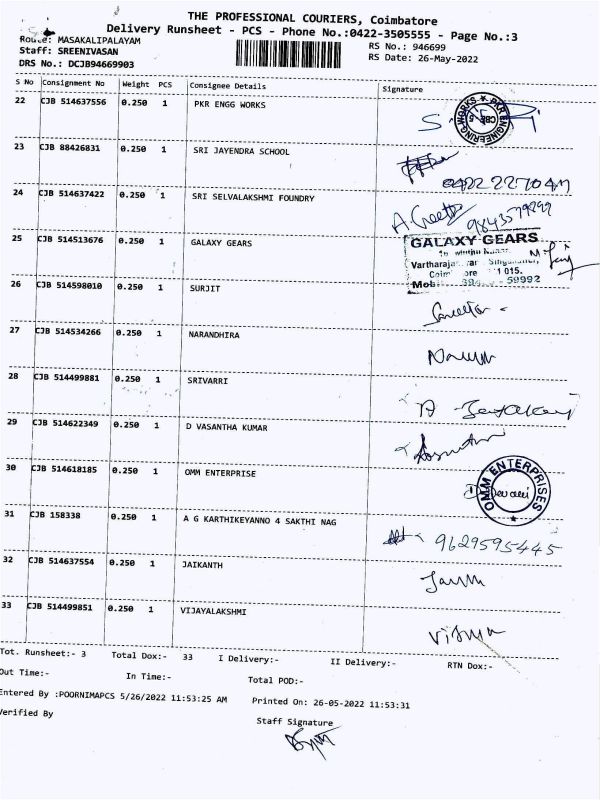 THE PROFESSIONAL COURIERS, Coimbatore
Delivery Runsheet - PCS - Phone No.:0422-3505555 - Page No.:3
Route: MASAKALIPALAYAM
RS No.: 946699
Staff: SREENIVASAN
RS Date: 26-May-2022
DRS No.: DCJB94669903
S No Consignment No Weight PCS Consignee Details Signature
22 CJB 514637556 0.250 1 PKR ENGG WORKS
PKR ENGINEERING WORKS CBE
23 CJB 88426831 0.250 1 SRI JAYENDRA SCHOOL
24 CJB 514637422 0.250 1 SRI SELVALAKSHMI FOUNDRY
A Geetha 9843579299
25 CJB 514513676 0.250 1 GALAXY GEARS
GALAXY GEARS
Mob
59992
26 CJB 514598010 0.250 1 SURJIT
27 CJB 514534266 0.250 1 NARANDHIRA
28 CJB 514499881 0.250 1 SRIVARRI
29 CJB 514622349 0.250 1 D VASANTHA KUMAR
30 CJB 514618185 0.250 1 OMM ENTERPRISE
OMM ENTERPRISES
31 CJB 158338 0.250 1 A G KARTHIKEYANNO 4 SAKTHI NAG
9629595445
32 CJB 514637554 0.250 1 JAIKANTH
33 CJB 514499851 0.250 1 VIJAYALAKSHMI
Tot. Runsheet:- 3 Total Dox:- 33 I Delivery:- II Delivery:- RTN Dox:-
Out Time:- In Time:- Total POD:-
Entered By :POORNIMAPCS 5/26/2022 11:53:25 AM Printed On: 26-05-2022 11:53:31
Verified By Staff Signature